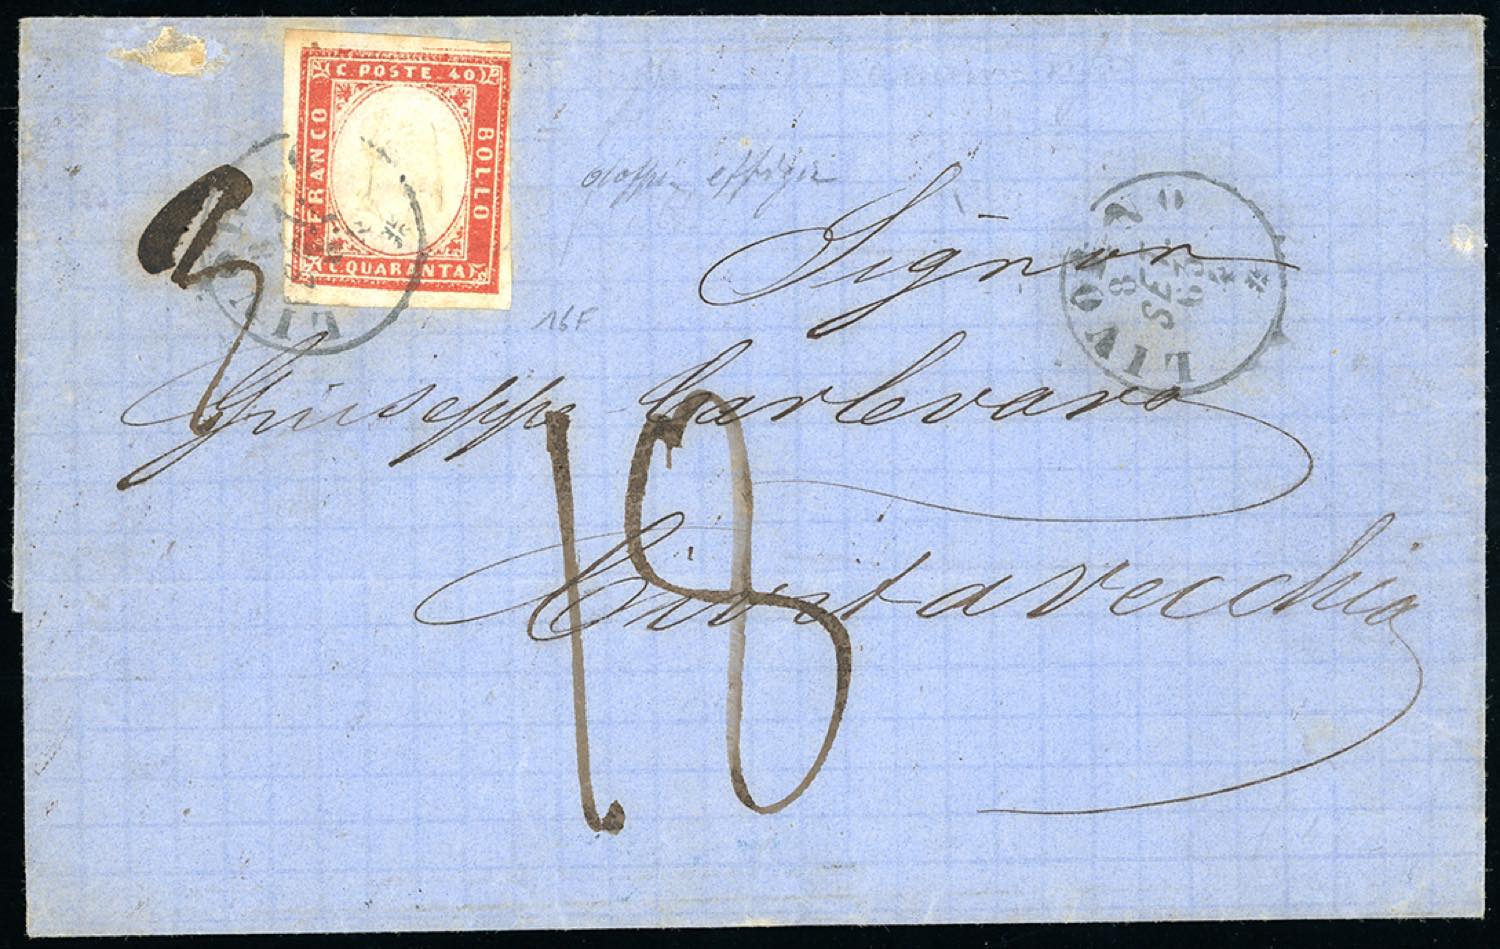 C. POSTE 40
FRANCO
BOLLO
C. QUARANTA
LIV
effigie
16F
Signor
LIVORNO
8
SET
63
Giuseppe Carlevaro
18
Civitavecchia